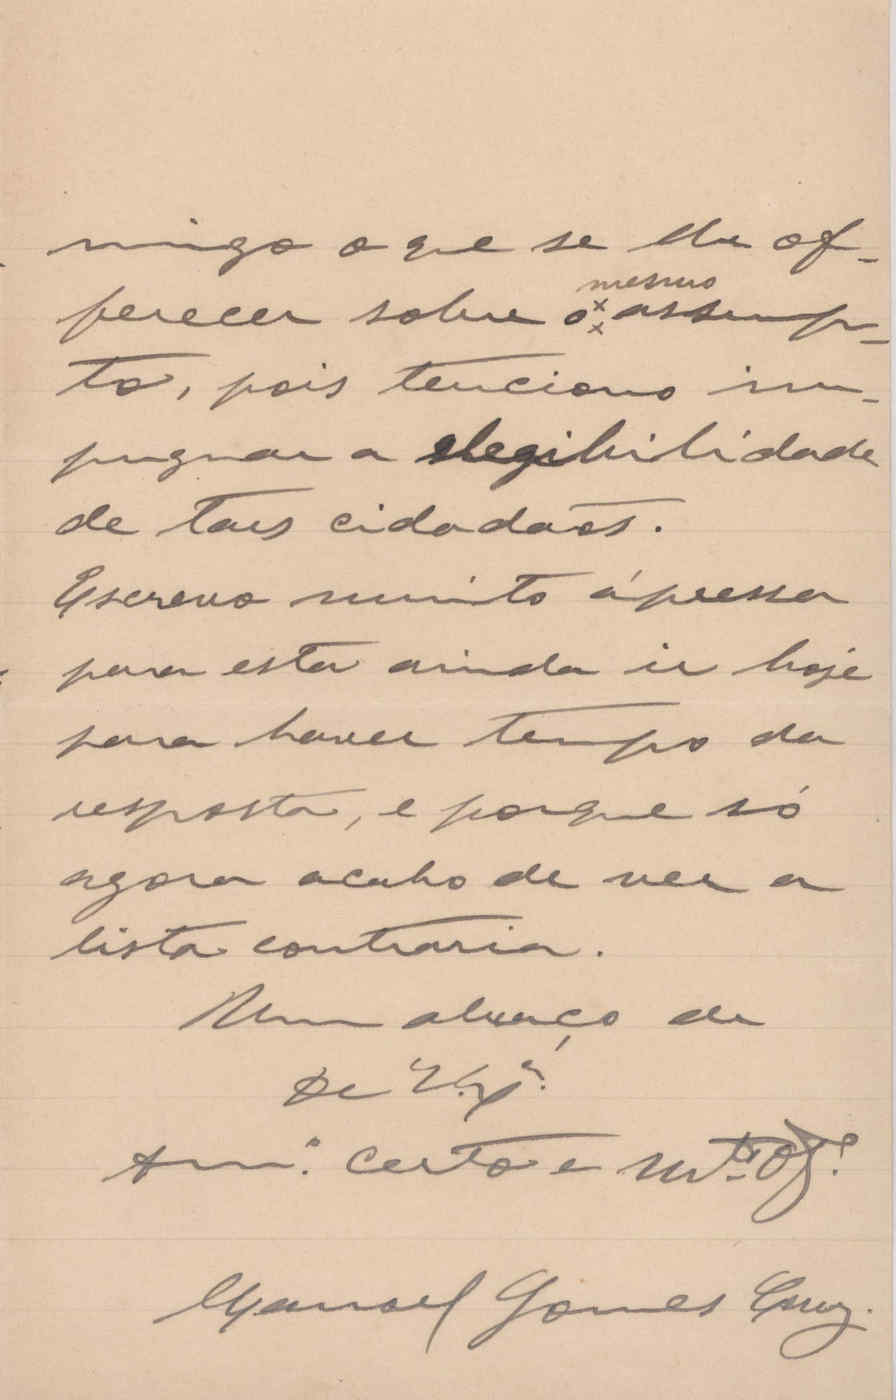 mingo o que se lhe of-
ferecer sobre o mesmo assump-
to, pois tenciono im-
pugnar a elegibilidade
de taes cidadãos.
Escrevo muito á pressa
para esta ainda ir hoje
para haver tempo da
resposta, e porque só
agora acabo de ver a
lista contraria.
Um abraço do
De V. Ex.ª
Am.º certo e mt.º Obg.º
Manoel Gomes Cruz.